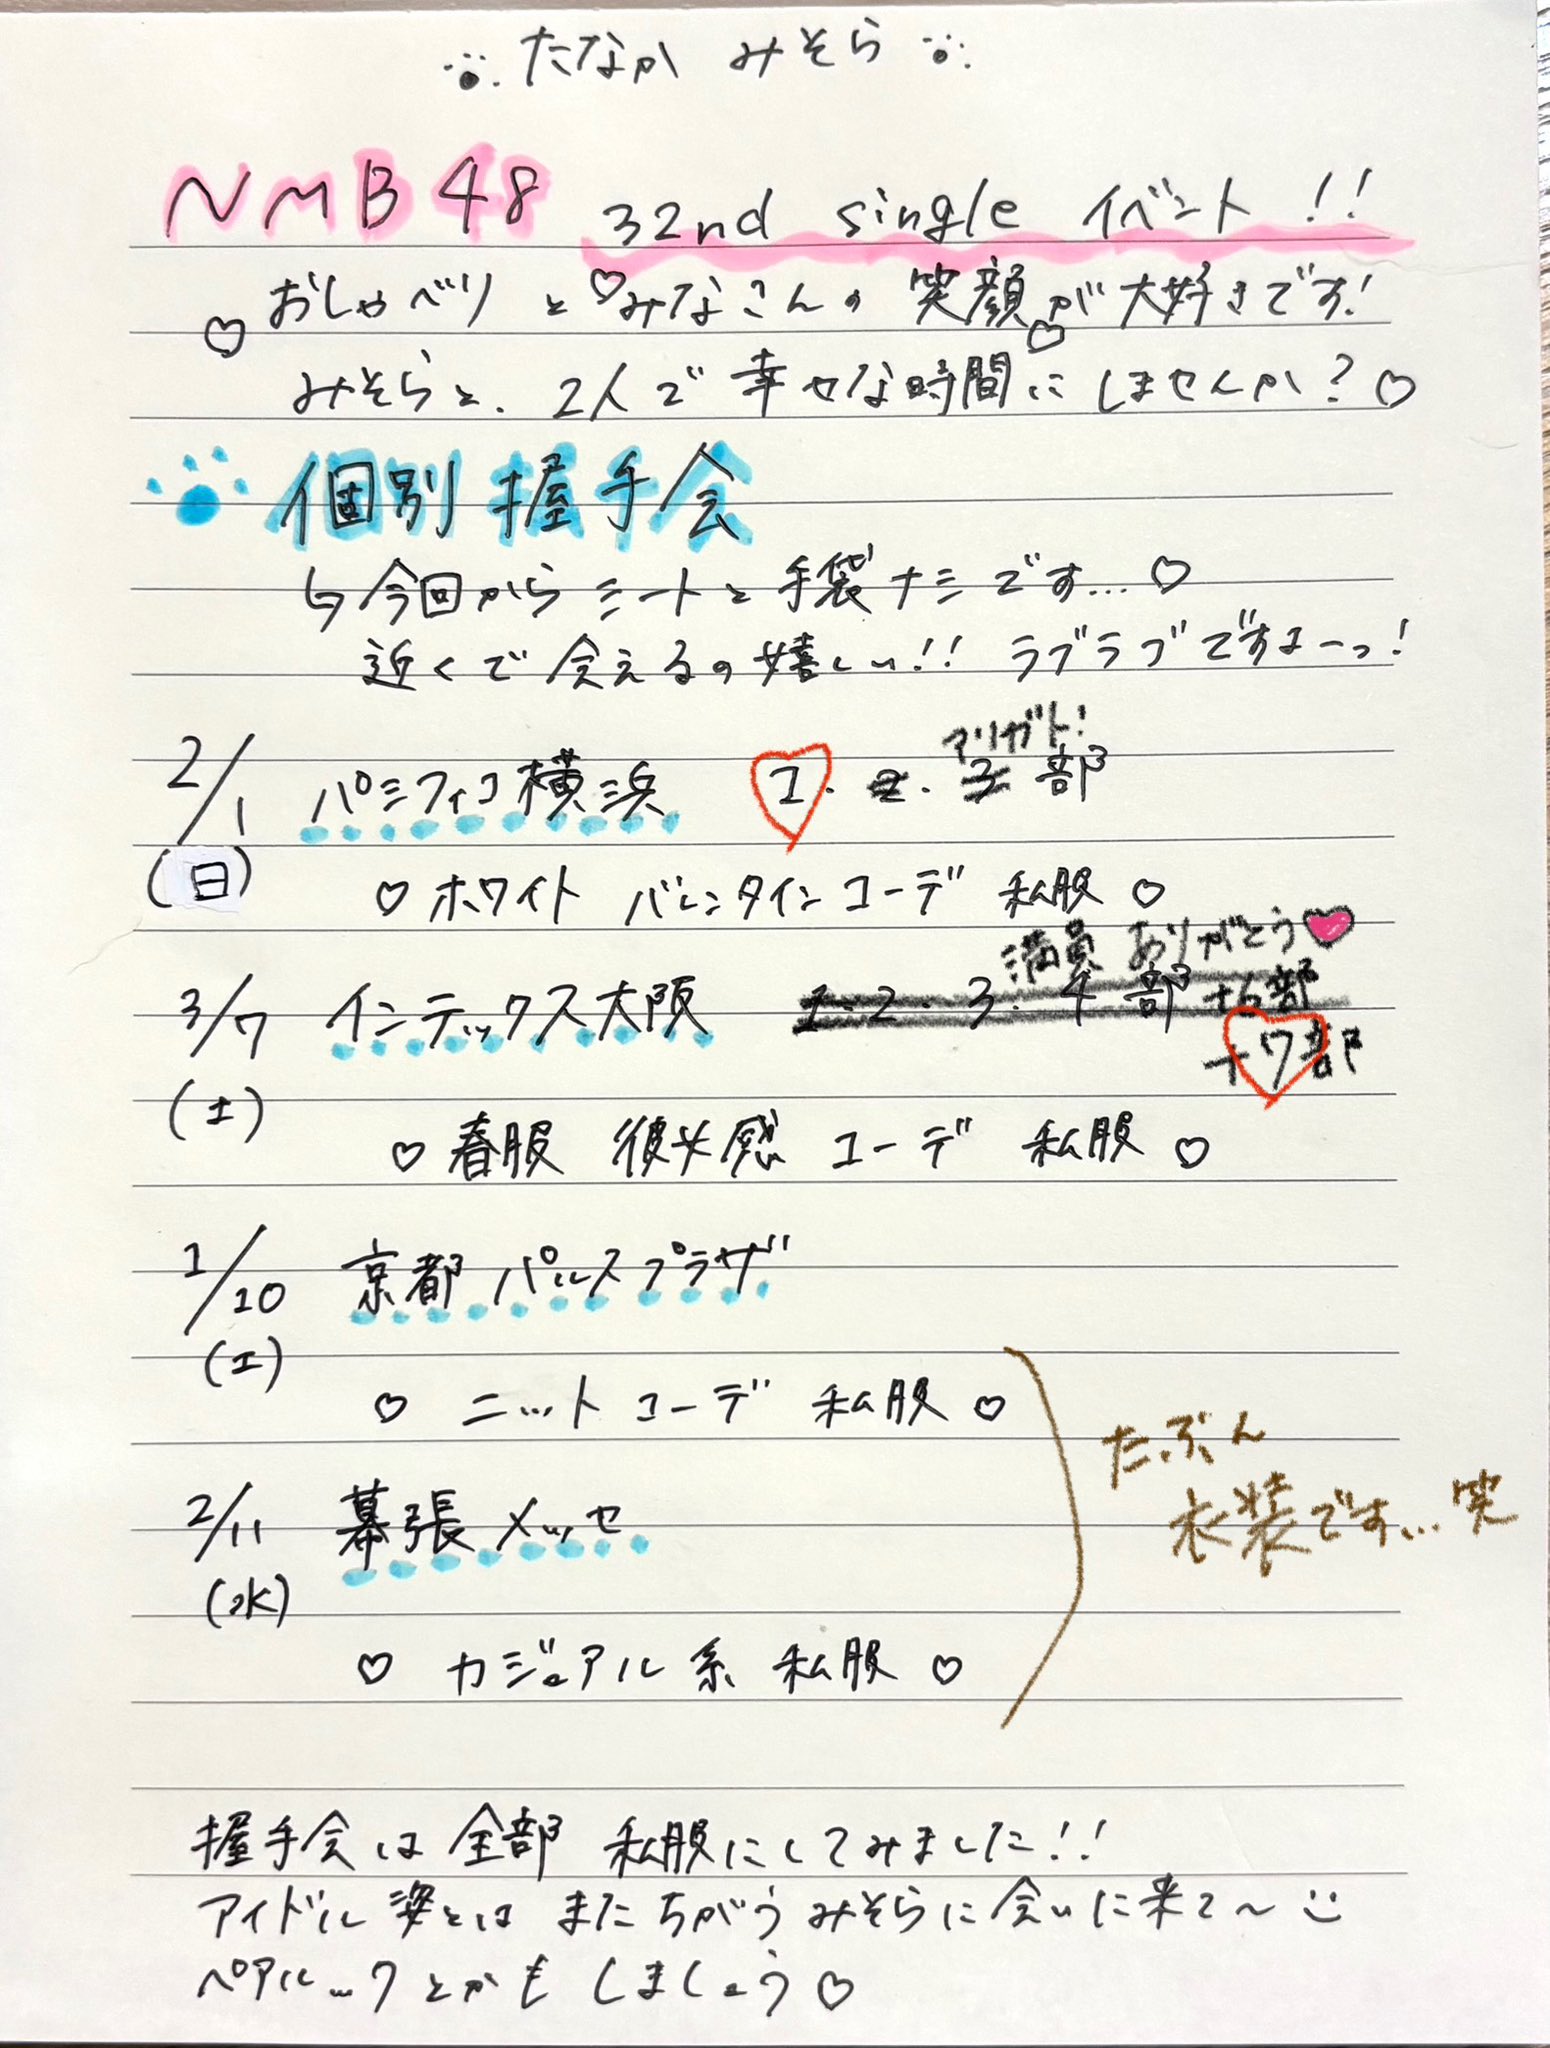 たなか みそら
NMB48 32nd single イベント!!
おしゃべり と みなさんの 笑顔が大好きです!
みそらと、2人で 幸せな時間にしませんか?♡
個別握手会
↳今回からシートと手袋ナシです…♡
近くで会えるの嬉しい!! ラブラブですよーっ!
アリガト!
2/1 パシフィコ横浜 1・2・3部
(日)
♡ホワイト バレンタインコーデ 私服♡
満員 ありがとう♥
3/7 インテックス大阪 1・2・3・4部 +6部
+7部
(土)
♡春服 彼女感 コーデ 私服♡
1/10 京都 パルスプラザ
(土)
♡ ニットコーデ 私服 ♡
たぶん
衣装です…笑
2/11 幕張メッセ
(水)
♡ カジュアル系 私服 ♡
握手会は全部 私服にしてみました!!
アイドル姿とは またちがうみそらに会いに来て〜
ペアルックとかも しましょう♡